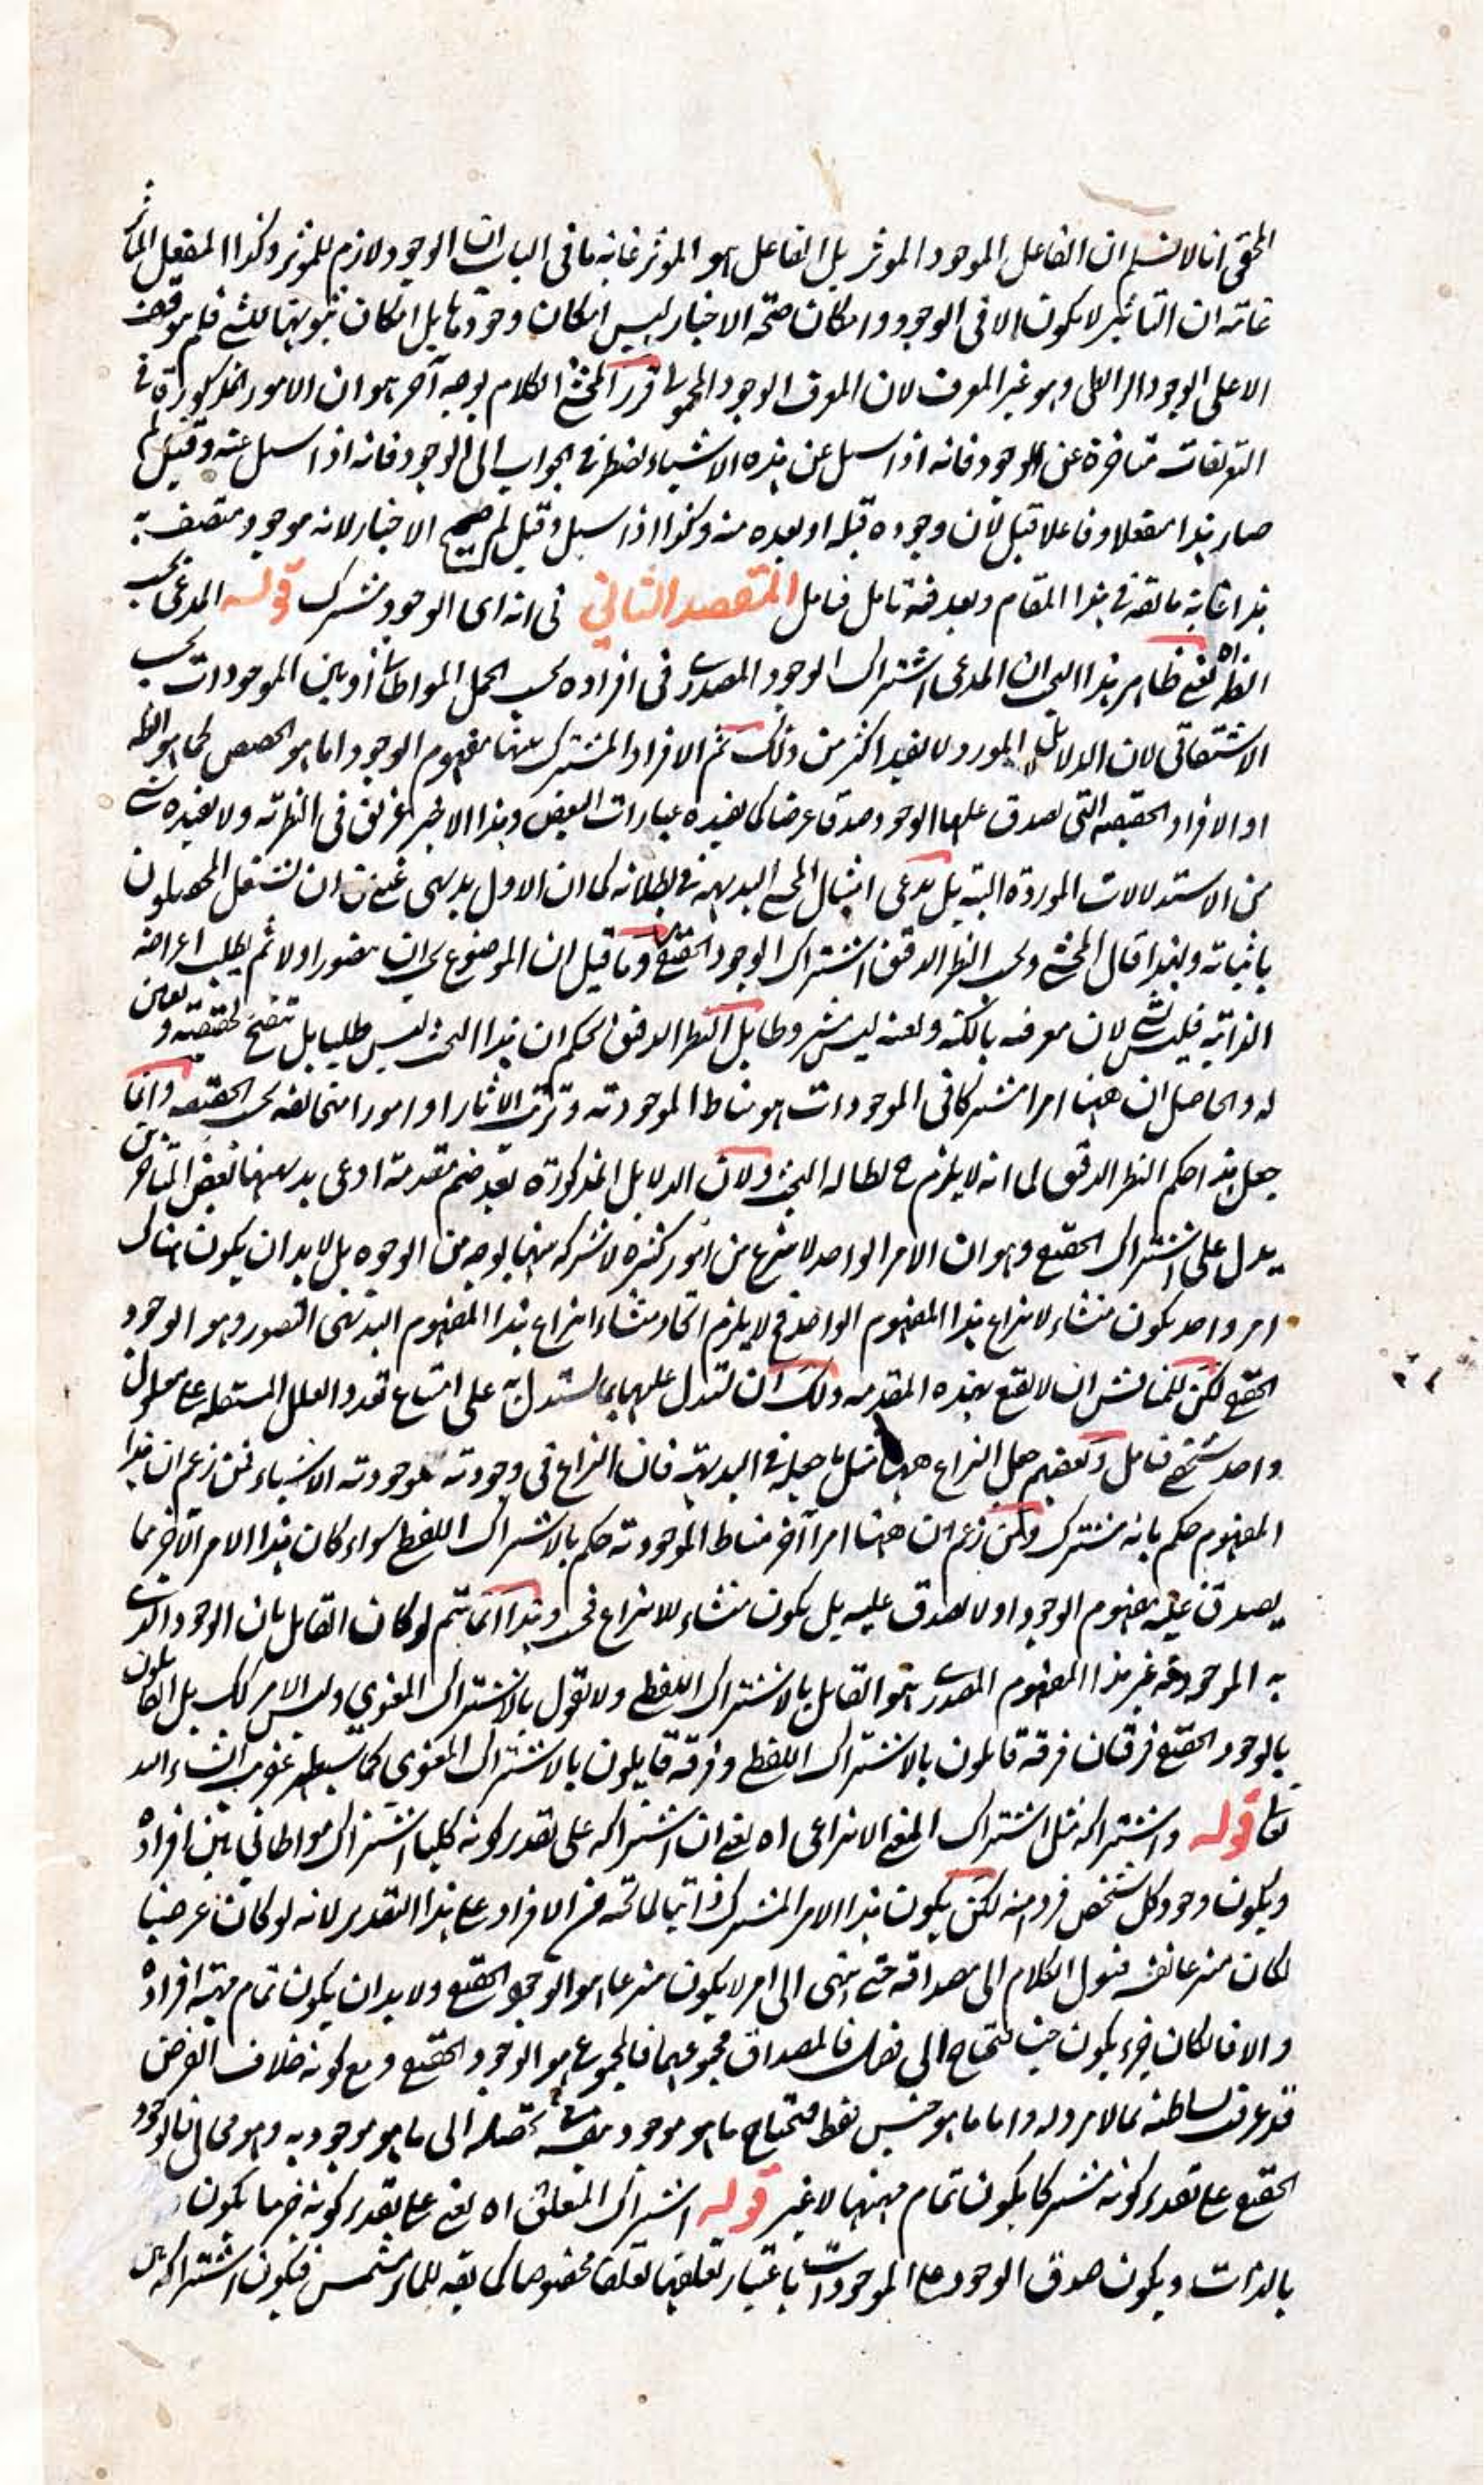 المحقق انا لا نسلم ان الفاعل الموجود الموثر بل الفاعل هو الموثر غاية ما في الباب ان الوجود لازم للموثر وكذا المنفعل المتاثر
غايته ان التاثير لا يكون الا في الوجود وامكان صحة الاخبار ليس امكان وجودها بل امكان ثبوتها للشئ فلم يتوقف
الا على الوجود الرابطي وهو غير المعرف لان المعرف الوجود المحمولي قرر المحشي الكلام بوجه آخر هو ان الامور المذكورة في
التعريفات متاخرة عن الوجود فانه اذا سئل عن هذه الاشياء نضطر في الجواب الى الوجود فانه اذا سئل عنه وقيل لم
صار هذا منفعلا وفاعلا قيل لان وجوده قبله او بعده منه وكذا اذا سئل وقيل لم صح الاخبار لانه موجود متصف به
هذا غاية ما يقال في هذا المقام وبعد فيه تامل فتامل المقصد الثاني في انه اي الوجود مشترك قوله المدعى بحسب
النظر اه يعني ظاهر هذا البحث ان المدعى اشتراك الوجود المصدري في افراده بحسب الحمل المواطاتي او بين الموجودات بحسب
الاشتقاقي لان الدلائل المورد لا يفيد اكثر من ذلك ثم الافراد المشترك بينها مفهوم الوجود اما هو الحصص كما هو الظ
او الافراد الحقيقية التي يصدق عليها الوجود صدقا عرضيا كما يفيده عبارات البعض وهذا الاخير غريق في النظرية ولا يفيده شئ
من الاستدلالات الموردة البتة بل يدعى امثال المحشي البديهة في بطلانه كما ان الاول بديهي غني من ان يشتغل المحصلون
باثباته ولهذا قال المحشي وبحسب النظر الدقيق اشتراك الوجود الحقيقي وما قيل ان الموضوع يجب ان يتصور اولا ثم يطلب اعراضه
الذاتية فليس بشئ لان معرفته بالكنه وبعينه ليس مشروطا بل النظر الدقيق يحكم ان هذا البحث ليس طلبيا بل تنقيح لحقيقته وتعيين
له والحاصل ان ههنا امرا مشتركا في الموجودات هو مناط الموجودية وترتب الآثار او امورا متخالفة بحسب الحقيقة وانما
جعل هذا حكم النظر الدقيق لما انه لا يلزم ح لطالة البحث ولان الدلايل المذكورة بعد ضم مقدمة ادعى بديهتها بعض المتاخرين
يدل على اشتراك الحقيقي وهو ان الامر الواحد لا ينتزع من امور كثيرة لا شركة بينها بوجه من الوجوه بل لا بد ان يكون هناك
امر واحد يكون منشاء لانتزاع هذا المفهوم الواحد فح لا يلزم اتحاد منشاء انتزاع هذا المفهوم البديهي التصور وهو الوجود
الحقيقي لكن للمناقش ان لا يقنع بهذه المقدمة ولك ان تستدل عليها بما يستدل به على امتناع تعدد العلل المستقلة على معلول
واحد شخصي فتامل وبعضهم جعل النزاع ههنا مثل ما جعله في البديهية فان النزاع في وجوديته بموجودية الاشياء فمن زعم ان هذا
المفهوم حكم بانه مشترك ومن زعم ان ههنا امرا آخر مناط الموجودية حكم بالاشتراك اللفظي سواء كان هذا الامر الآخر مما
يصدق عليه مفهوم الوجود او لا يصدق عليه بل يكون منشاء للانتزاع فحسب وهذا انما يتم لو كان القايل بان الوجود الذي
به الموجودية غير هذا المفهوم المصدري هو القايل بالاشتراك اللفظي ولا يقول بالاشتراك المعنوي وليس الامر كك بل القايلون
بالوجود الحقيقي فرقتان فرقة قايلون بالاشتراك اللفظي وفرقة قايلون بالاشتراك المعنوي كما سيظهر عنقريب انشاء الله
تعا قوله واشتراكه مثل اشتراك المعنى الانتزاعي اه يعني ان اشتراكه على تقدير كونه كليا اشتراك مواطاتي بين افراده
ويكون وجود كل شخص فرد منه لكن يكون هذا الامر المشترك ذاتيا لما تحته من الافراد على هذا التقدير لانه لو كان عرضيا
لكان منتزعا فننقل الكلام الى مصداقه حتى ينتهى الى امر لا يكون منتزعا هو الوجود الحقيقي ولا بد ان يكون تمام مهية افراده
والا فان كان جزء يكون جنسا يحتاج الى فصل فالمصداق مجموعهما فالمجموع هو الوجود الحقيقي ومع كونه خلاف الفرض
قد عرفت بساطته بما لا مرد له واما ما هو جنس فقط فيحتاج ما هو موجود بنفسه في تحصله الى ما هو موجود به وهو محال فالوجود
الحقيقي على تقدير كونه مشتركا يكون تمام مهيتها لا غير قوله اشتراك المتعلق اه يعني على تقدير كونه جزئيا يكون
بالذات ويكون صدق الوجود على الموجودات باعتبار تعلقها تعلقا مخصوصا كما يقع للماء المشمس فيكون اشتراكه بين